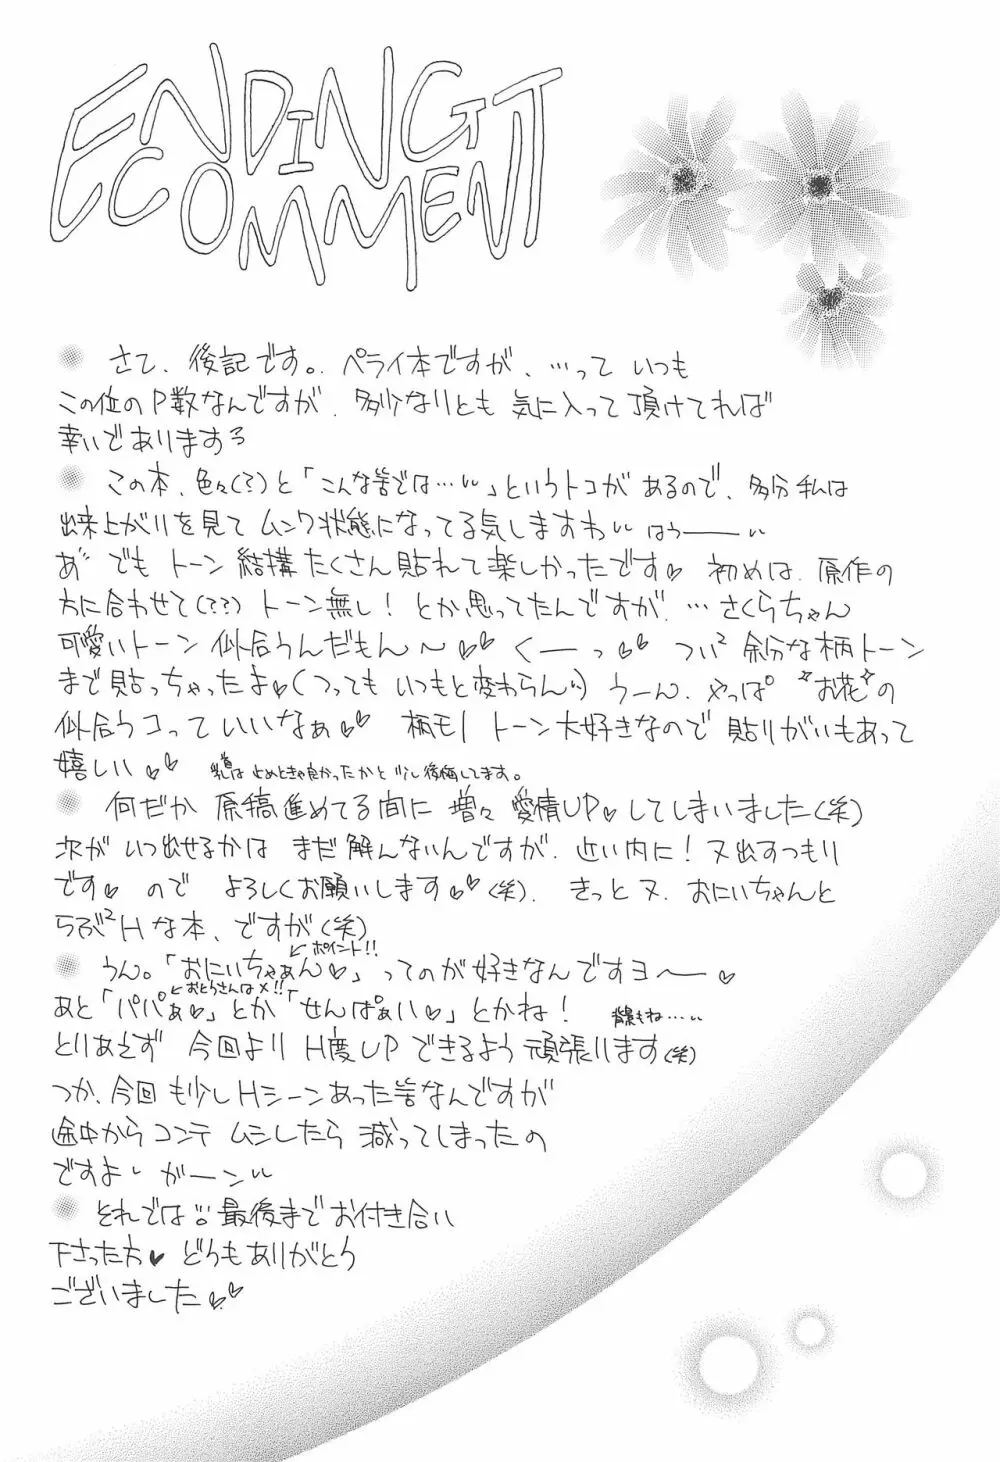 ENDING
COMMENT
さて、後記です。ペライ本ですが、…って いつも
この位のP数なんですが、多少なりとも 気に入って 頂けてれば
幸いでありまするっ
この本、色々(?)と「こんな筈では…」というトコが あるので、多分 私は
出来上がりを見て ムンク状態になってる気しますわ はうーー
あ゛でも トーン 結構 たくさん貼れて楽しかったです♥ 初めは、原作の
方に合わせて(??) トーン無し! とか思ってたんですが、…さくらちゃん
可愛いトーン 似合うんだもん〜♥♥ くーーっ♥♥ つい² 余分な柄トーン
まで貼っちゃったよ♥(つっても いつもと変わらん) うーん、やっぱ "お花"の
似合うコって いいなぁ♥♥ 柄モノトーン大好きなので 貼りがいもあって
嬉しい♥♥ はやめときゃ良かったかと 少し後悔してます。
何だか 原稿進めてる間に 増々 愛情UP♥してしまいました(笑)
次が いつ出せるかは まだ 解んないんですが、近い内に! 又出すつもり
です♥ ので よろしくお願いします♥♥(笑)、 きっと 又、おにいちゃんと
らぶ²Hな本、ですが(笑)
ポイント!!
うん。「おにいちゃぁん♥」ってのが 好きなんですヨー〜♥
おとうさんはメ!!
あと「パパぁ♥」とか「せんぱぁい♥」とかね! 背景もね…
とりあえず 今回より H度UP できるよう 頑張ります(笑)
つか、今回 も少しHシーンあった筈なんですが
途中から コンテ ムシしたら 減ってしまったの
ですよ がーン
それでは 最後まで お付き合い
下さった方♥ どうもありがとう
ございました♥♥